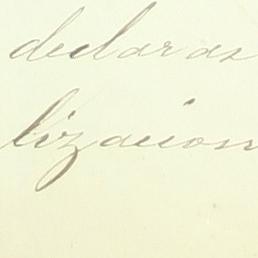 declaras
lizacion